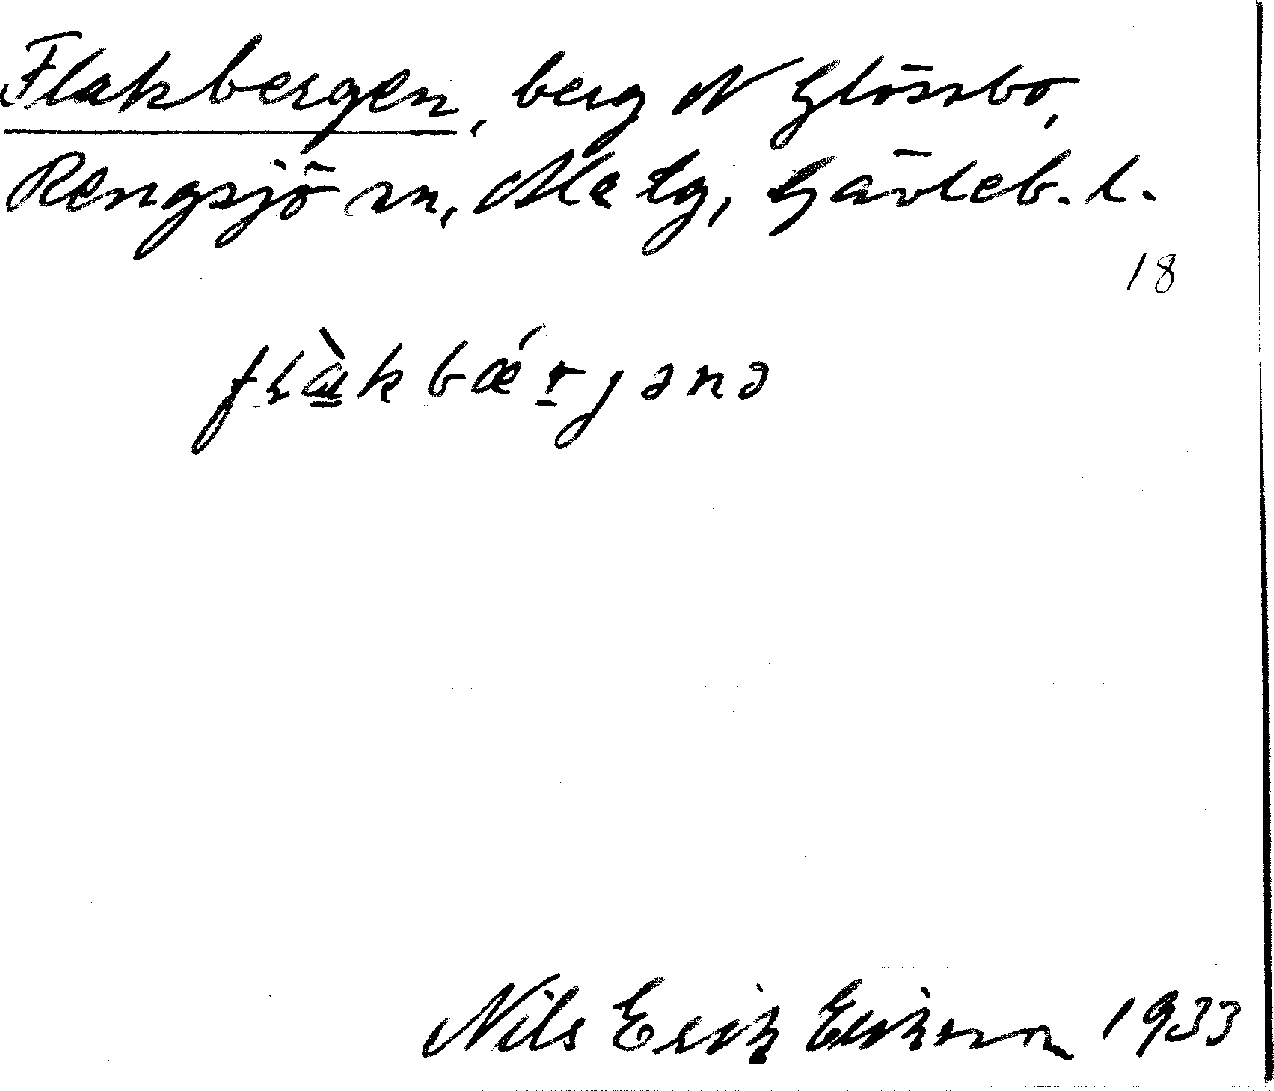 Flakbergen, berg N Glössbo,
Rengsjö sn, Ala tg, Gävleb. l.
18
flàkbǽrjənə
Nils Erik Eriksson 1933